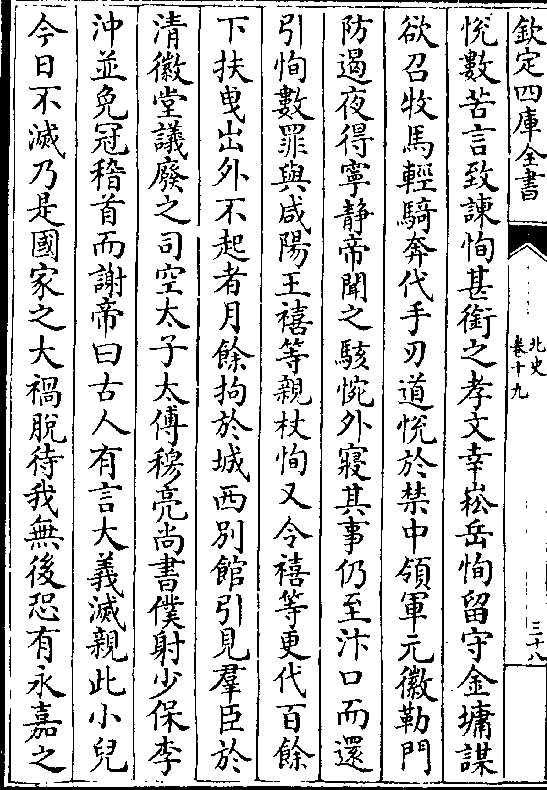 欽定四庫全書
北史
卷十九
三十八
悅數苦言致諫恂甚銜之孝文幸崧岳恂留守金墉謀
欲召牧馬輕騎奔代手刃道悅於禁中領軍元徽勒門
防遏夜得寧静帝聞之駭惋外寢其事仍至汴口而還
引恂數罪與咸陽王禧等親杖恂又令禧等更代百餘
下扶曳出外不起者月餘拘於城西別館引見羣臣於
清徽堂議廢之司空太子太傅穆亮尚書僕射少保李
沖並免冠稽首而謝帝曰古人有言大義滅親此小兒
今日不滅乃是國家之大禍脫待我無後恐有永嘉之